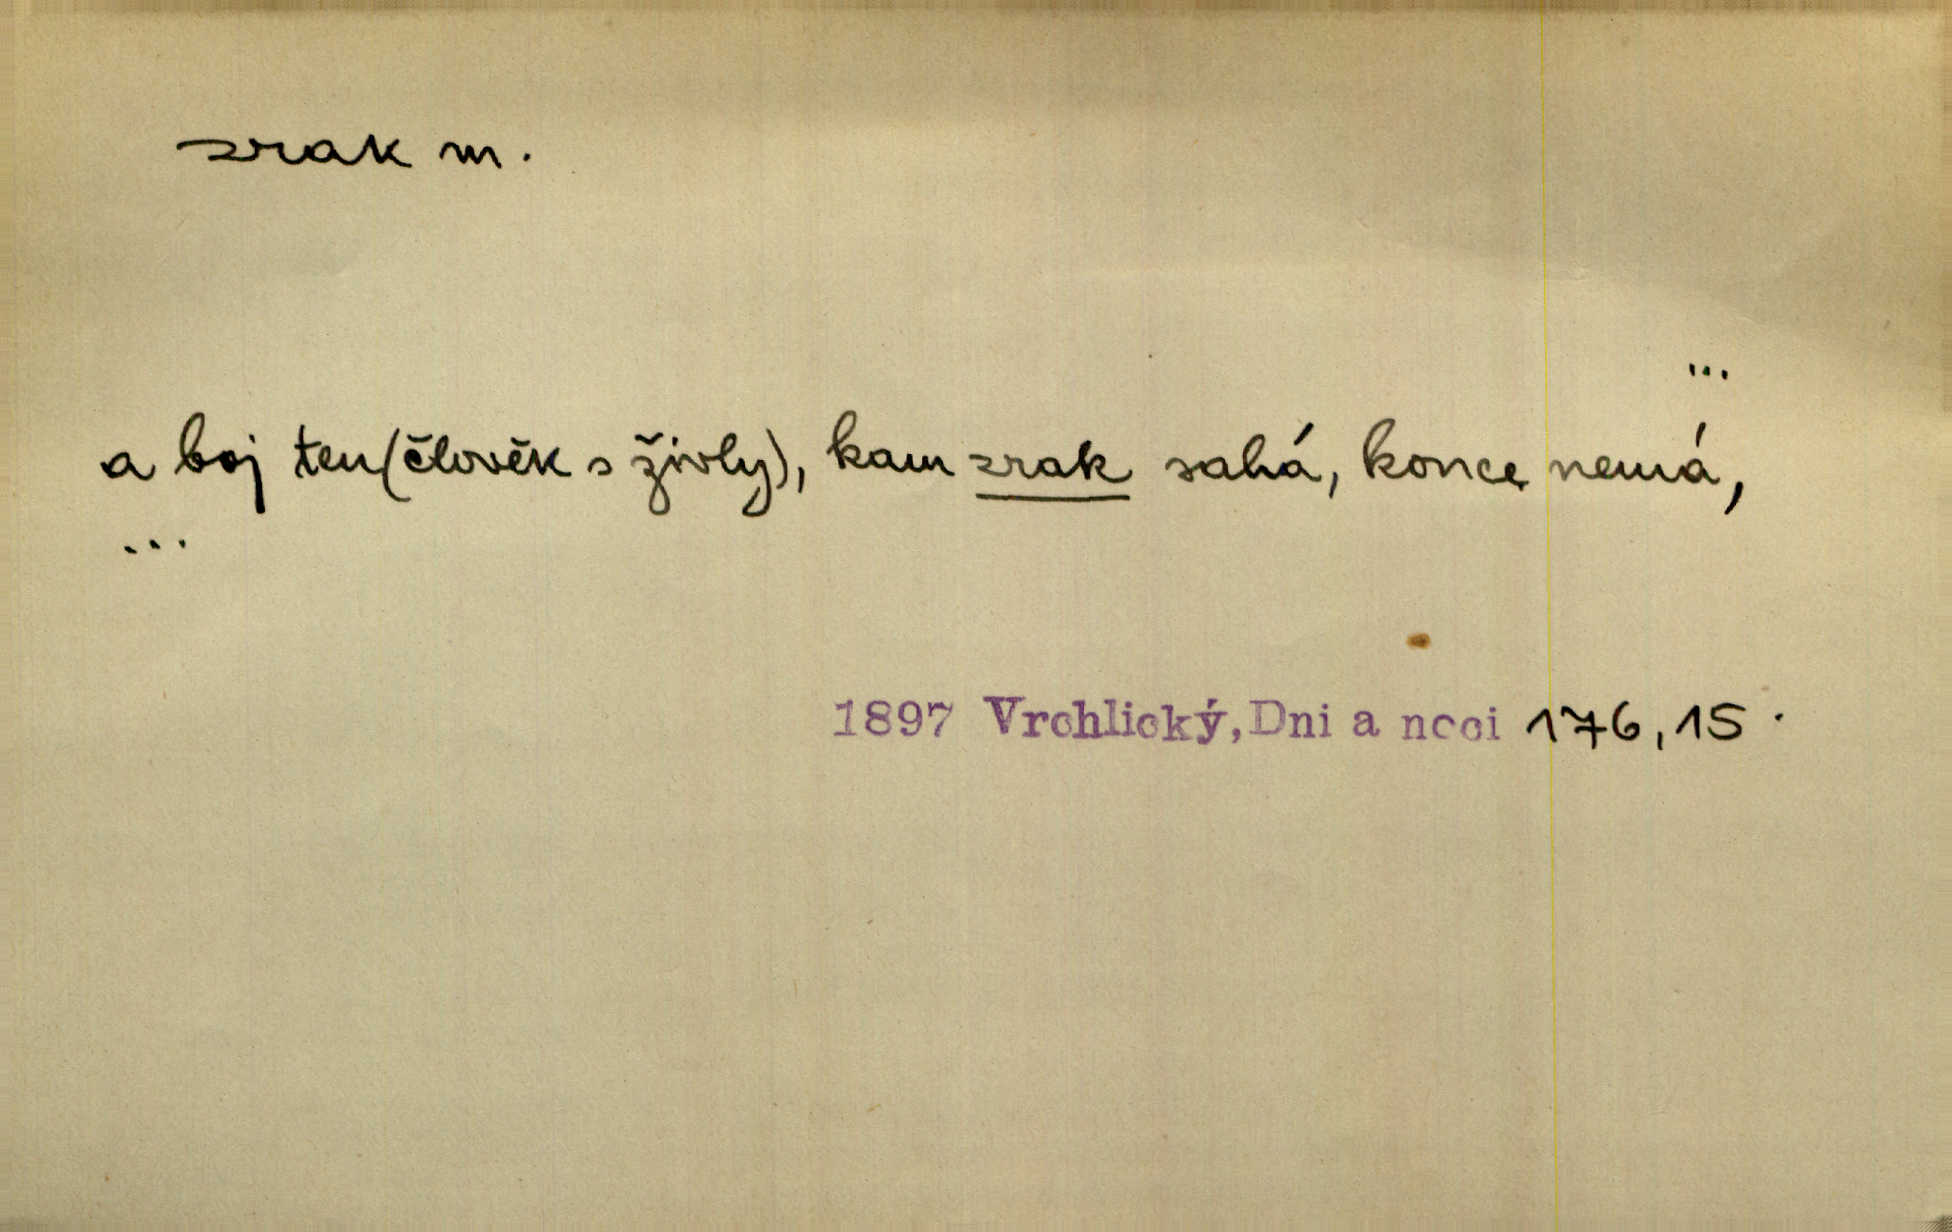 zrak m.
...
a boj ten (člověk s živly), kam zrak sahá, konce nemá,
...
1897 Vrchlický, Dni a noci 176, 15.